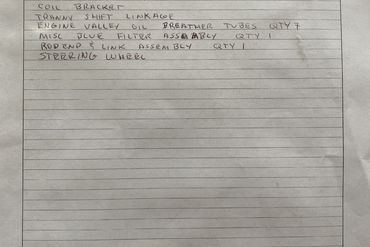 COIL BRACKET
TRANNY SHIFT LINKAGE
ENGINE VALLEY OIL BREATHER TUBES QTY 7
MISC BLUE FILTER ASSEMBLY QTY 1
ROD END & LINK ASSEMBLY QTY 1
STEERING WHEEL